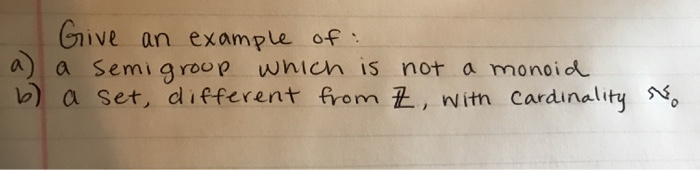 Give an example of :
a) a semigroup which is not a monoid
b) a set, different from ℤ, with cardinality ℵ₀